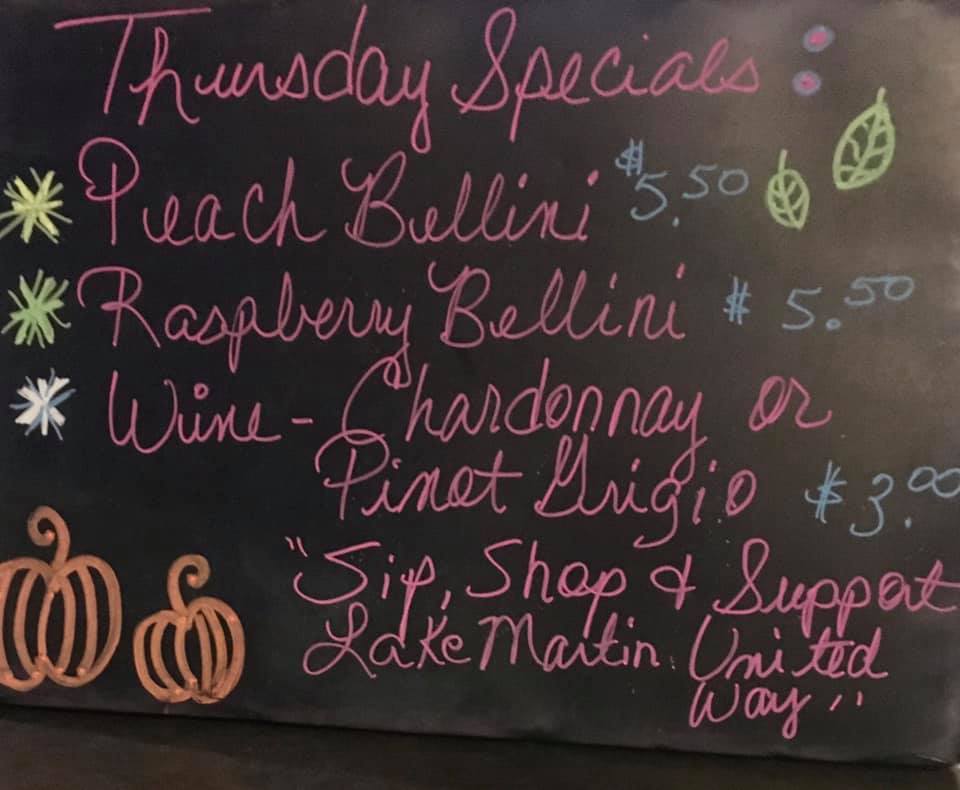 Thursday Specials:
Peach Bellini $5.50
Raspberry Bellini $5.50
Wine - Chardonnay or
Pinot Grigio $3.00
"Sip, Shop & Support
Lake Martin United
Way"